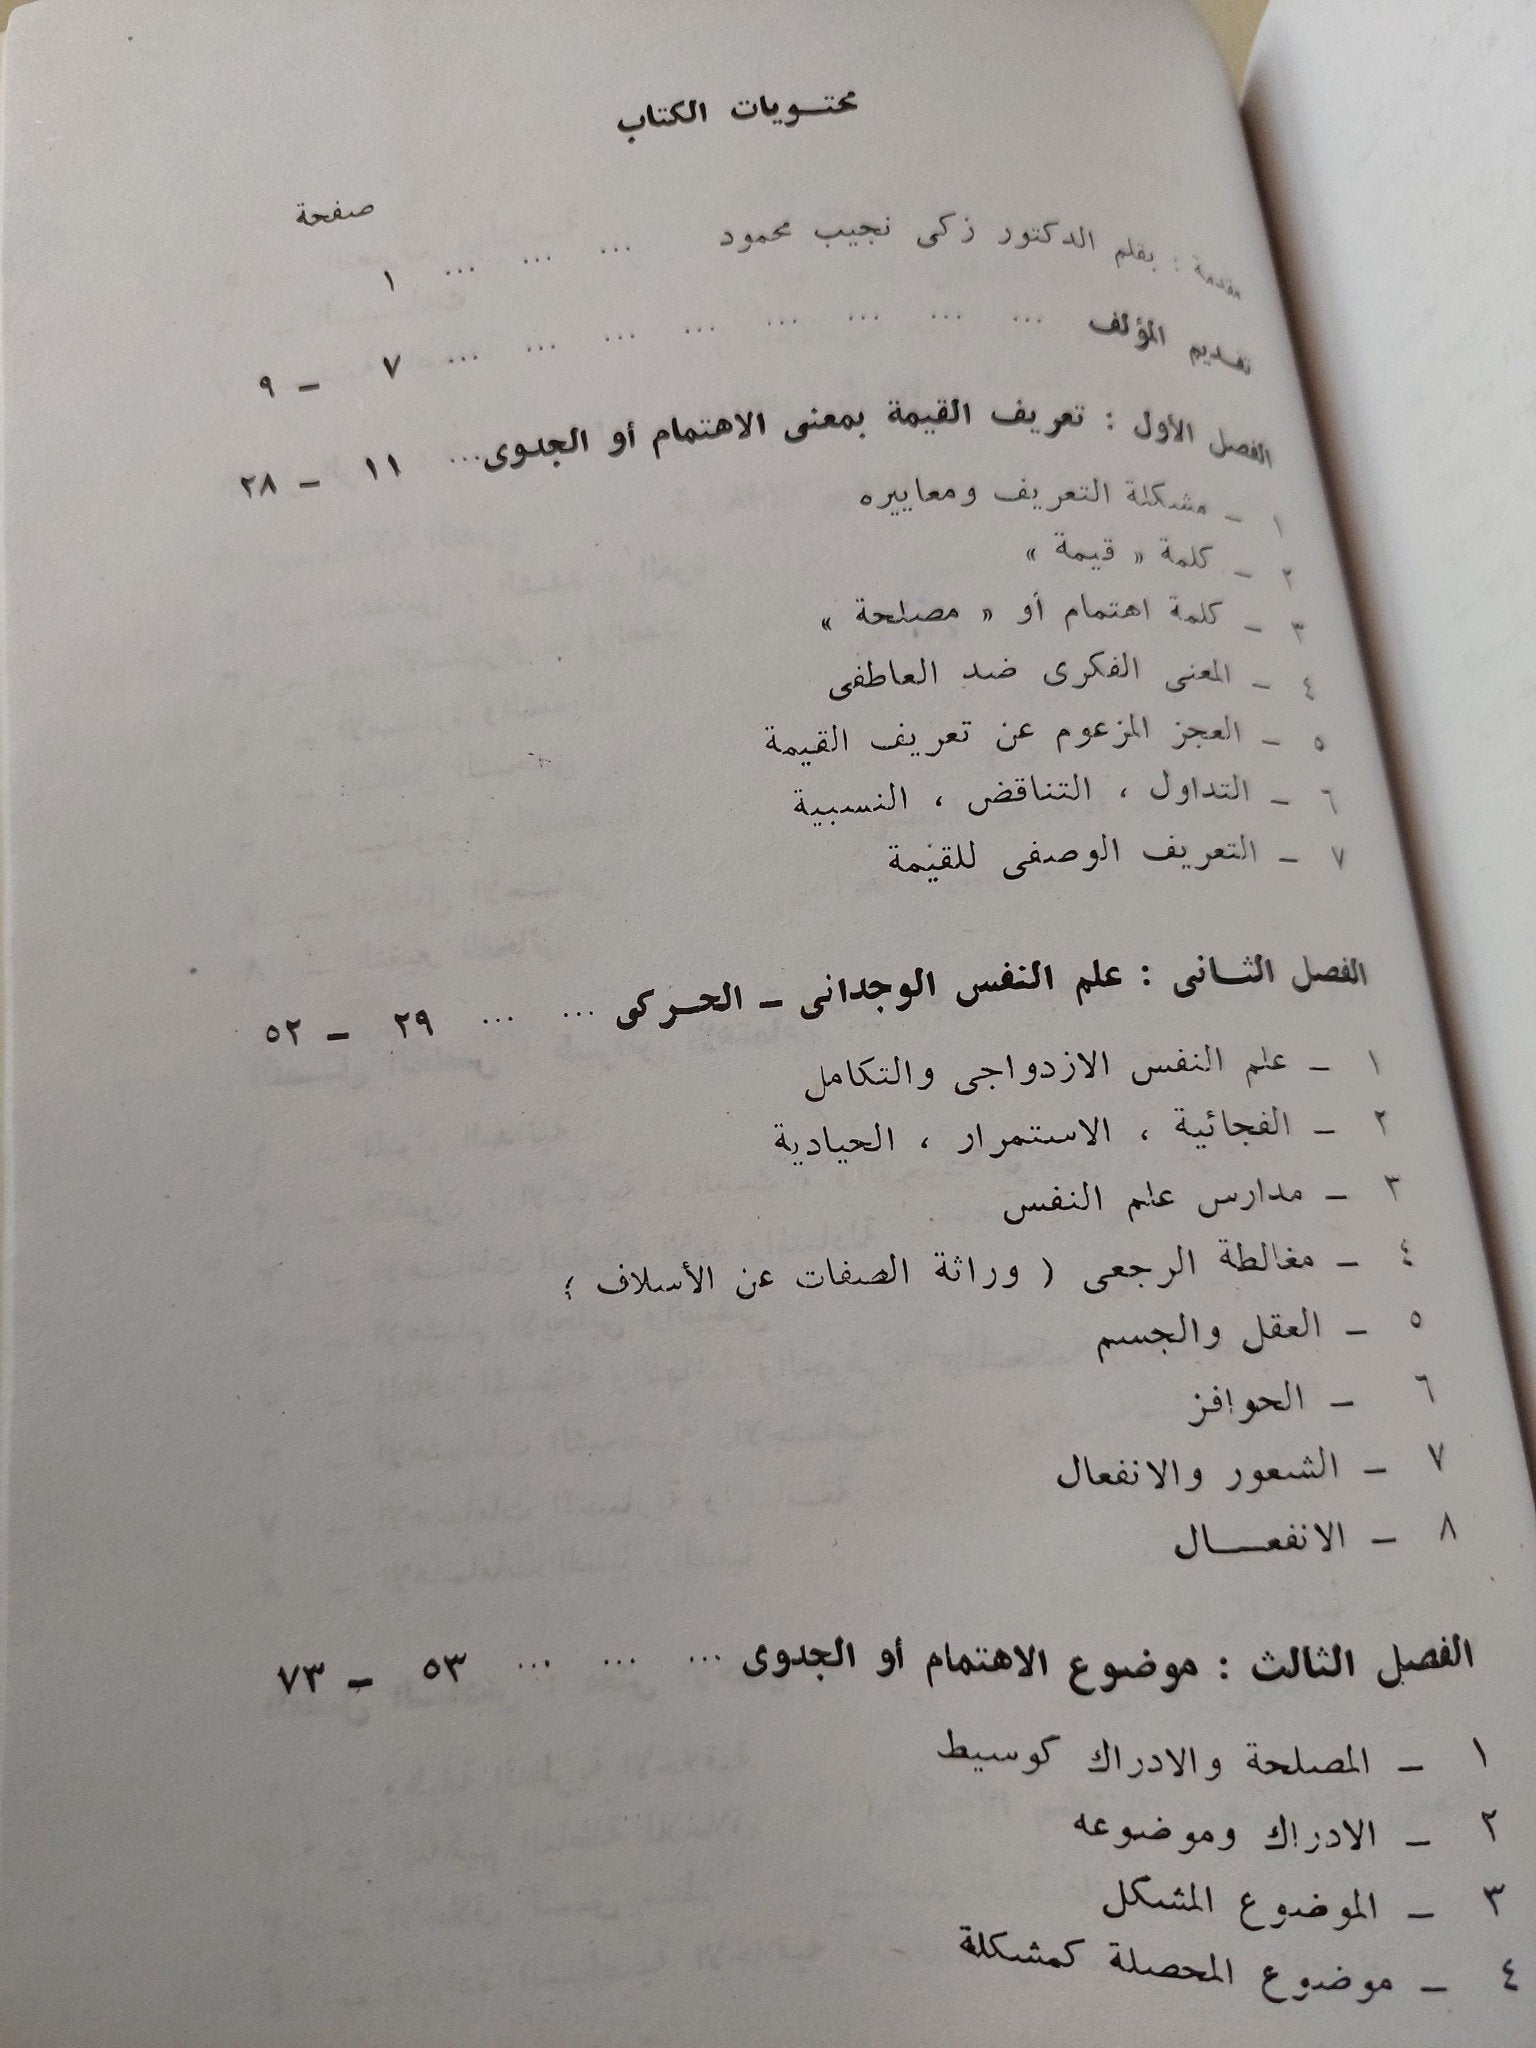 محتـويات الكتاب
صفحة
مقدمة : بقلم الدكتور زكى نجيب محمود ... ... ... ١
تقـديم المؤلف ... ... ... ... ... ... ... ... ٧ - ٩
الفصل الأول : تعريف القيمة بمعنى الاهتمام أو الجدوى ... ١١ - ٢٨
١ - مشكلة التعريف ومعاييره
٢ - كلمة « قيمة »
٣ - كلمة اهتمام أو « مصلحة »
٤ - المعنى الفكرى ضد العاطفى
٥ - العجز المزعوم عن تعريف القيمة
٦ - التداول ، التناقض ، النسبية
٧ - التعريف الوصفى للقيمة
الفصل الثـانى : علم النفس الوجدانى - الحـركى ... ... ٢٩ - ٥٢
١ - علم النفس الازدواجى والتكامل
٢ - الفجائية ، الاستمرار ، الحيادية
٣ - مدارس علم النفس
٤ - مغالطة الرجعى ( وراثة الصفات عن الأسلاف ؛
٥ - العقل والجسم
٦ - الحوافز
٧ - الشعور والانفعال
٨ - الانفعـــال
الفصل الثالث : موضوع الاهتمام أو الجدوى ... ... ... ٥٣ - ٧٣
١ - المصلحة والادراك كوسيط
٢ - الادراك وموضوعه
٣ - الموضوع المشكل
٤ - موضوع المحصلة كمشكلة